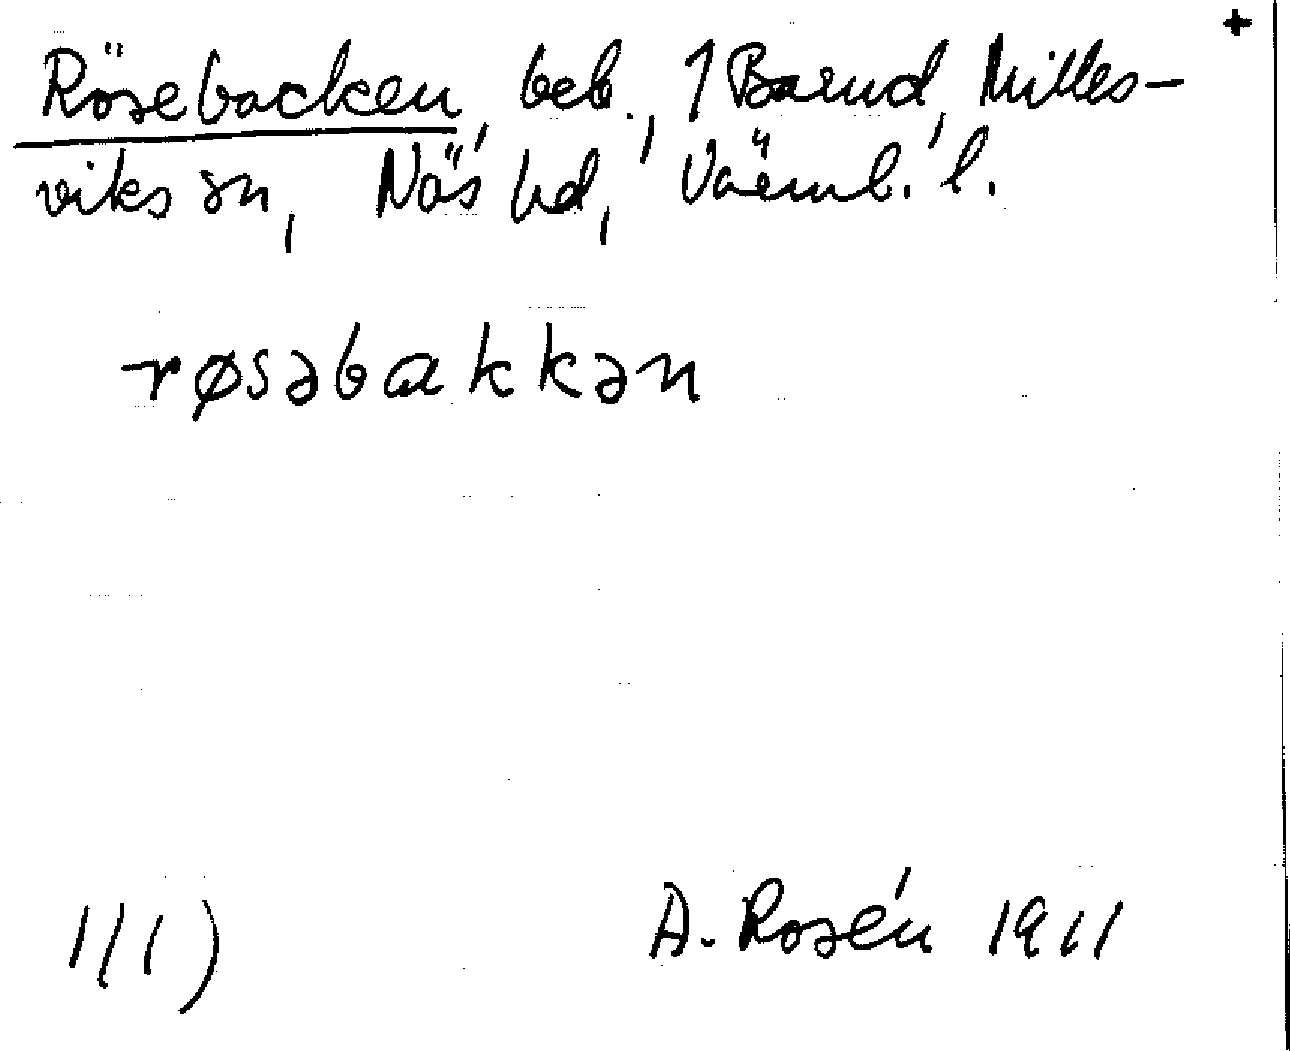 +
Rösebacken, beb., 1 Barud, Milles-
viks sn, Näs hd, Värml. l.
røsəbakkən
1(1) A. Rosén 1911